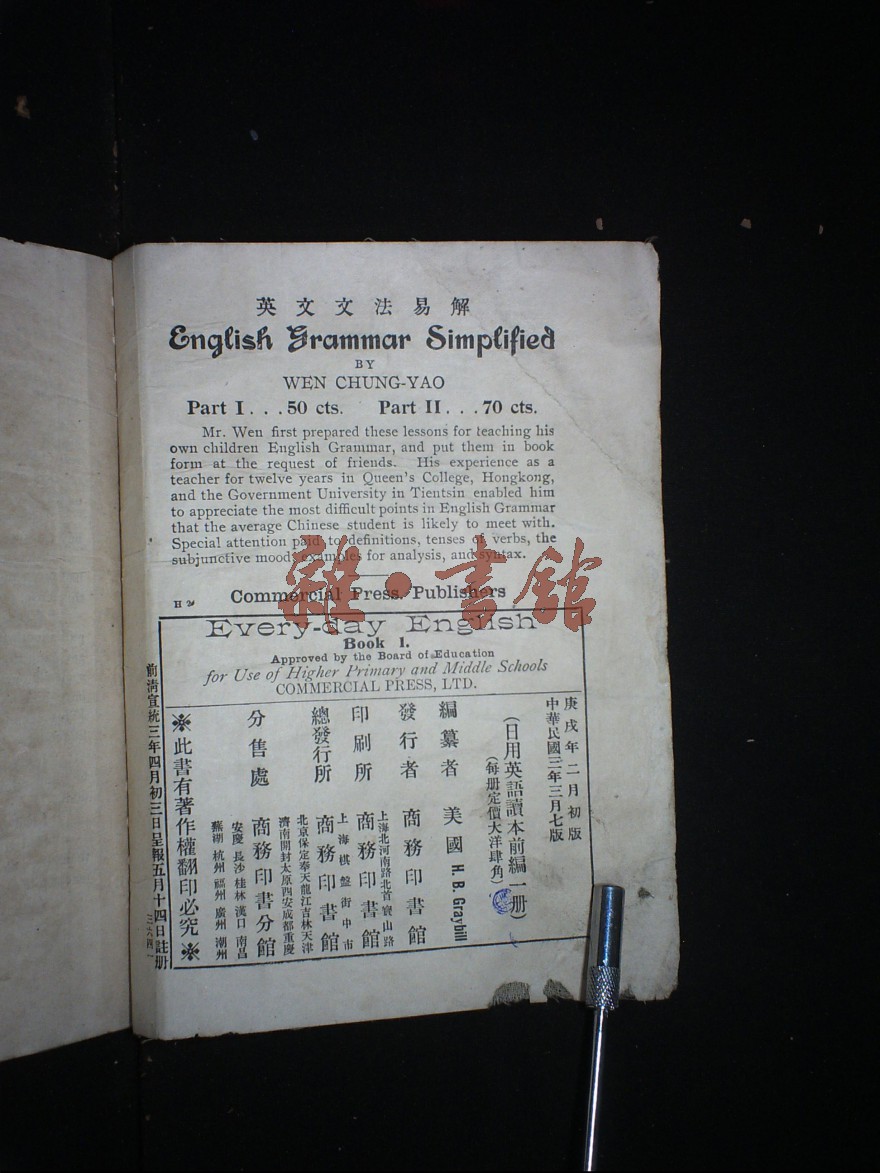 英文文法易解
English Grammar Simplified
BY
WEN CHUNG-YAO
Part I . . . 50 cts. Part II . . . 70 cts.
Mr. Wen first prepared these lessons for teaching his
own children English Grammar, and put them in book
form at the request of friends. His experience as a
teacher for twelve years in Queen's College, Hongkong,
and the Government University in Tientsin enabled him
to appreciate the most difficult points in English Grammar
that the average Chinese student is likely to meet with.
Special attention paid to definitions, tenses of verbs, the
subjunctive mood, examples for analysis, and syntax.
Commercial Press, Publishers
雜·書館
Every-day English
Book 1.
Approved by the Board of Education
for Use of Higher Primary and Middle Schools
COMMERCIAL PRESS, LTD.
庚戌年二月初版
中華民國三年三月七版
(日用英語讀本前編一册)
(每册定價大洋肆角)
編纂者 美國 H. B. Graybill
發行者 商務印書館
上海北河南路北首寶山路
印刷所 商務印書館
上海棋盤街中市
總發行所 商務印書館
北京保定奉天龍江吉林天津
濟南開封太原西安成都重慶
分售處 商務印書分館
安慶長沙桂林漢口南昌
蕪湖杭州福州廣州潮州
※此書有著作權翻印必究※
前清宣統三年四月初三日呈報五月十四日註册